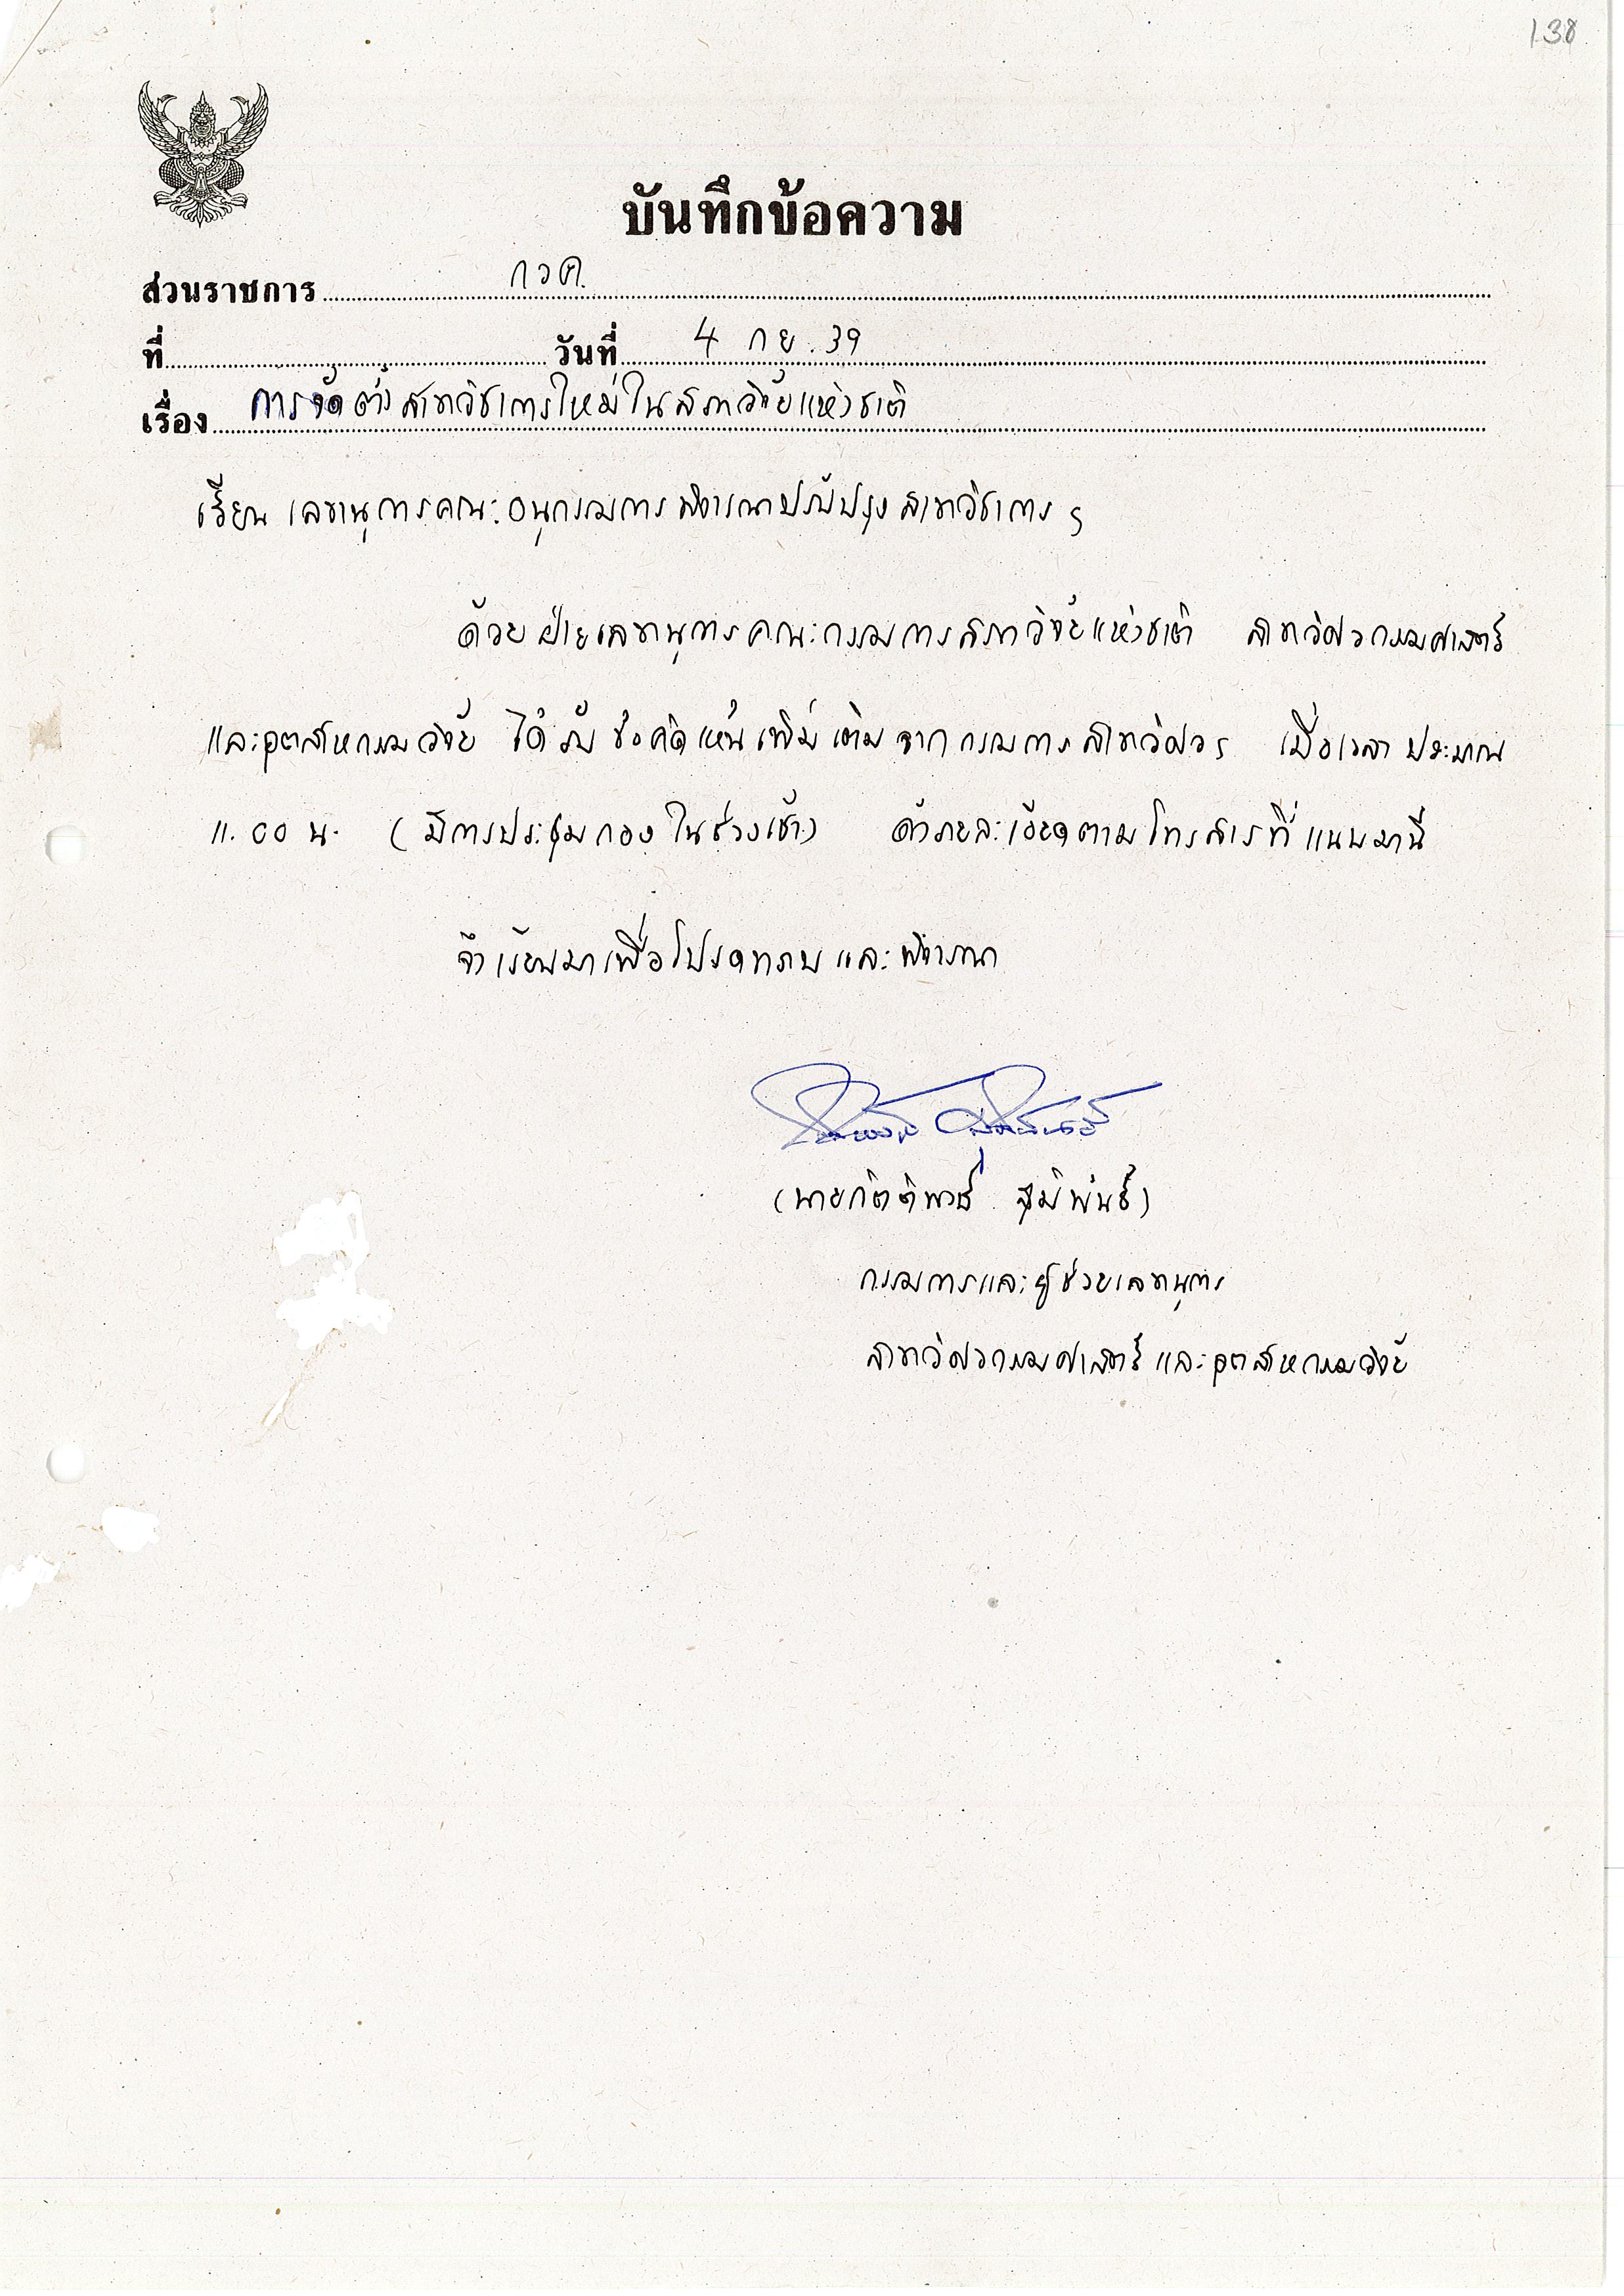 138
บันทึกข้อความ
ส่วนราชการ กวค.
ที่ วันที่ 4 กย. 39
เรื่อง การจัดตั้งสาขาวิชาการใหม่ในสภาวิจัยแห่งชาติ
เรียน เลขานุการคณะอนุกรรมการพิจารณาปรับปรุงสาขาวิชาการ ฯ
ด้วย ฝ่ายเลขานุการคณะกรรมการสภาวิจัยแห่งชาติ สาขาวิศวกรรมศาสตร์
และอุตสาหกรรมวิจัย ได้รับข้อคิดเห็นเพิ่มเติมจากกรรมการสาขาวิศวฯ เมื่อเวลาประมาณ
11.00 น. (มีการประชุมกองในช่วงเช้า) ดังรายละเอียดตามโทรสารที่แนบมานี้
จึงเรียนมาเพื่อโปรดทราบและพิจารณา
(นายกิตติพงษ์ ภูมิพันธ์)
กรรมการและผู้ช่วยเลขานุการ
สาขาวิศวกรรมศาสตร์และอุตสาหกรรมวิจัย